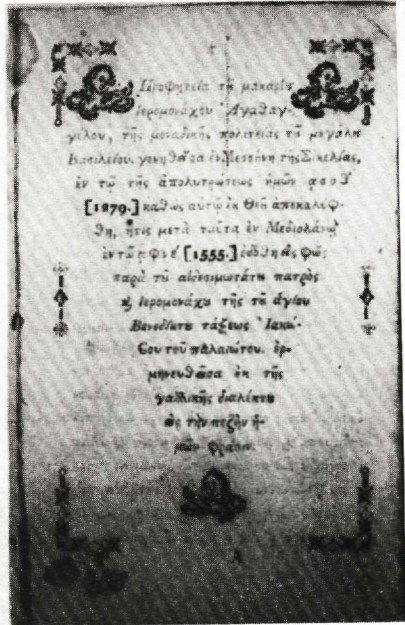 Προφητεία τȣ͂ μακαρίτ
ἱερομονάχου Ἀγαθαγ-
γέλου, τῆς μοναδικῆς πολιτείας τȣ͂ μεγάλου
Βασιλείου. γενηθεῖσα ἐν Μεσσήνῃ τῆς Σικελίας,
ἐν τῷ τῆς ἀπολυτρώσεως ἡμῶν ασοθ´
[1279.] καθὼς αὐτῷ ἐκ Θεȣ͂ ἀπεκαλύφ-
θη, ἥτις μετὰ ταῦτα ἐν Μεδιολάνῳ
ἐν τῷ αφνέ [1555.] ἐδόθη εἰς φῶς
παρὰ τȣ͂ αἰδεσιμωτάτȣ πατρὸς
ϗ ἱερομονάχȣ τῆς τȣ͂ ἁγίου
Βενεδίκτȣ τάξεως Ἰακώ-
βου τοῦ παλαιώτου. ἑρ-
μηνευθεῖσα ἐκ τῆς
γαλλικῆς διαλέκτȣ
εἰς τὴν πεζὴν ἡ-
μῶν φράσιν.
A